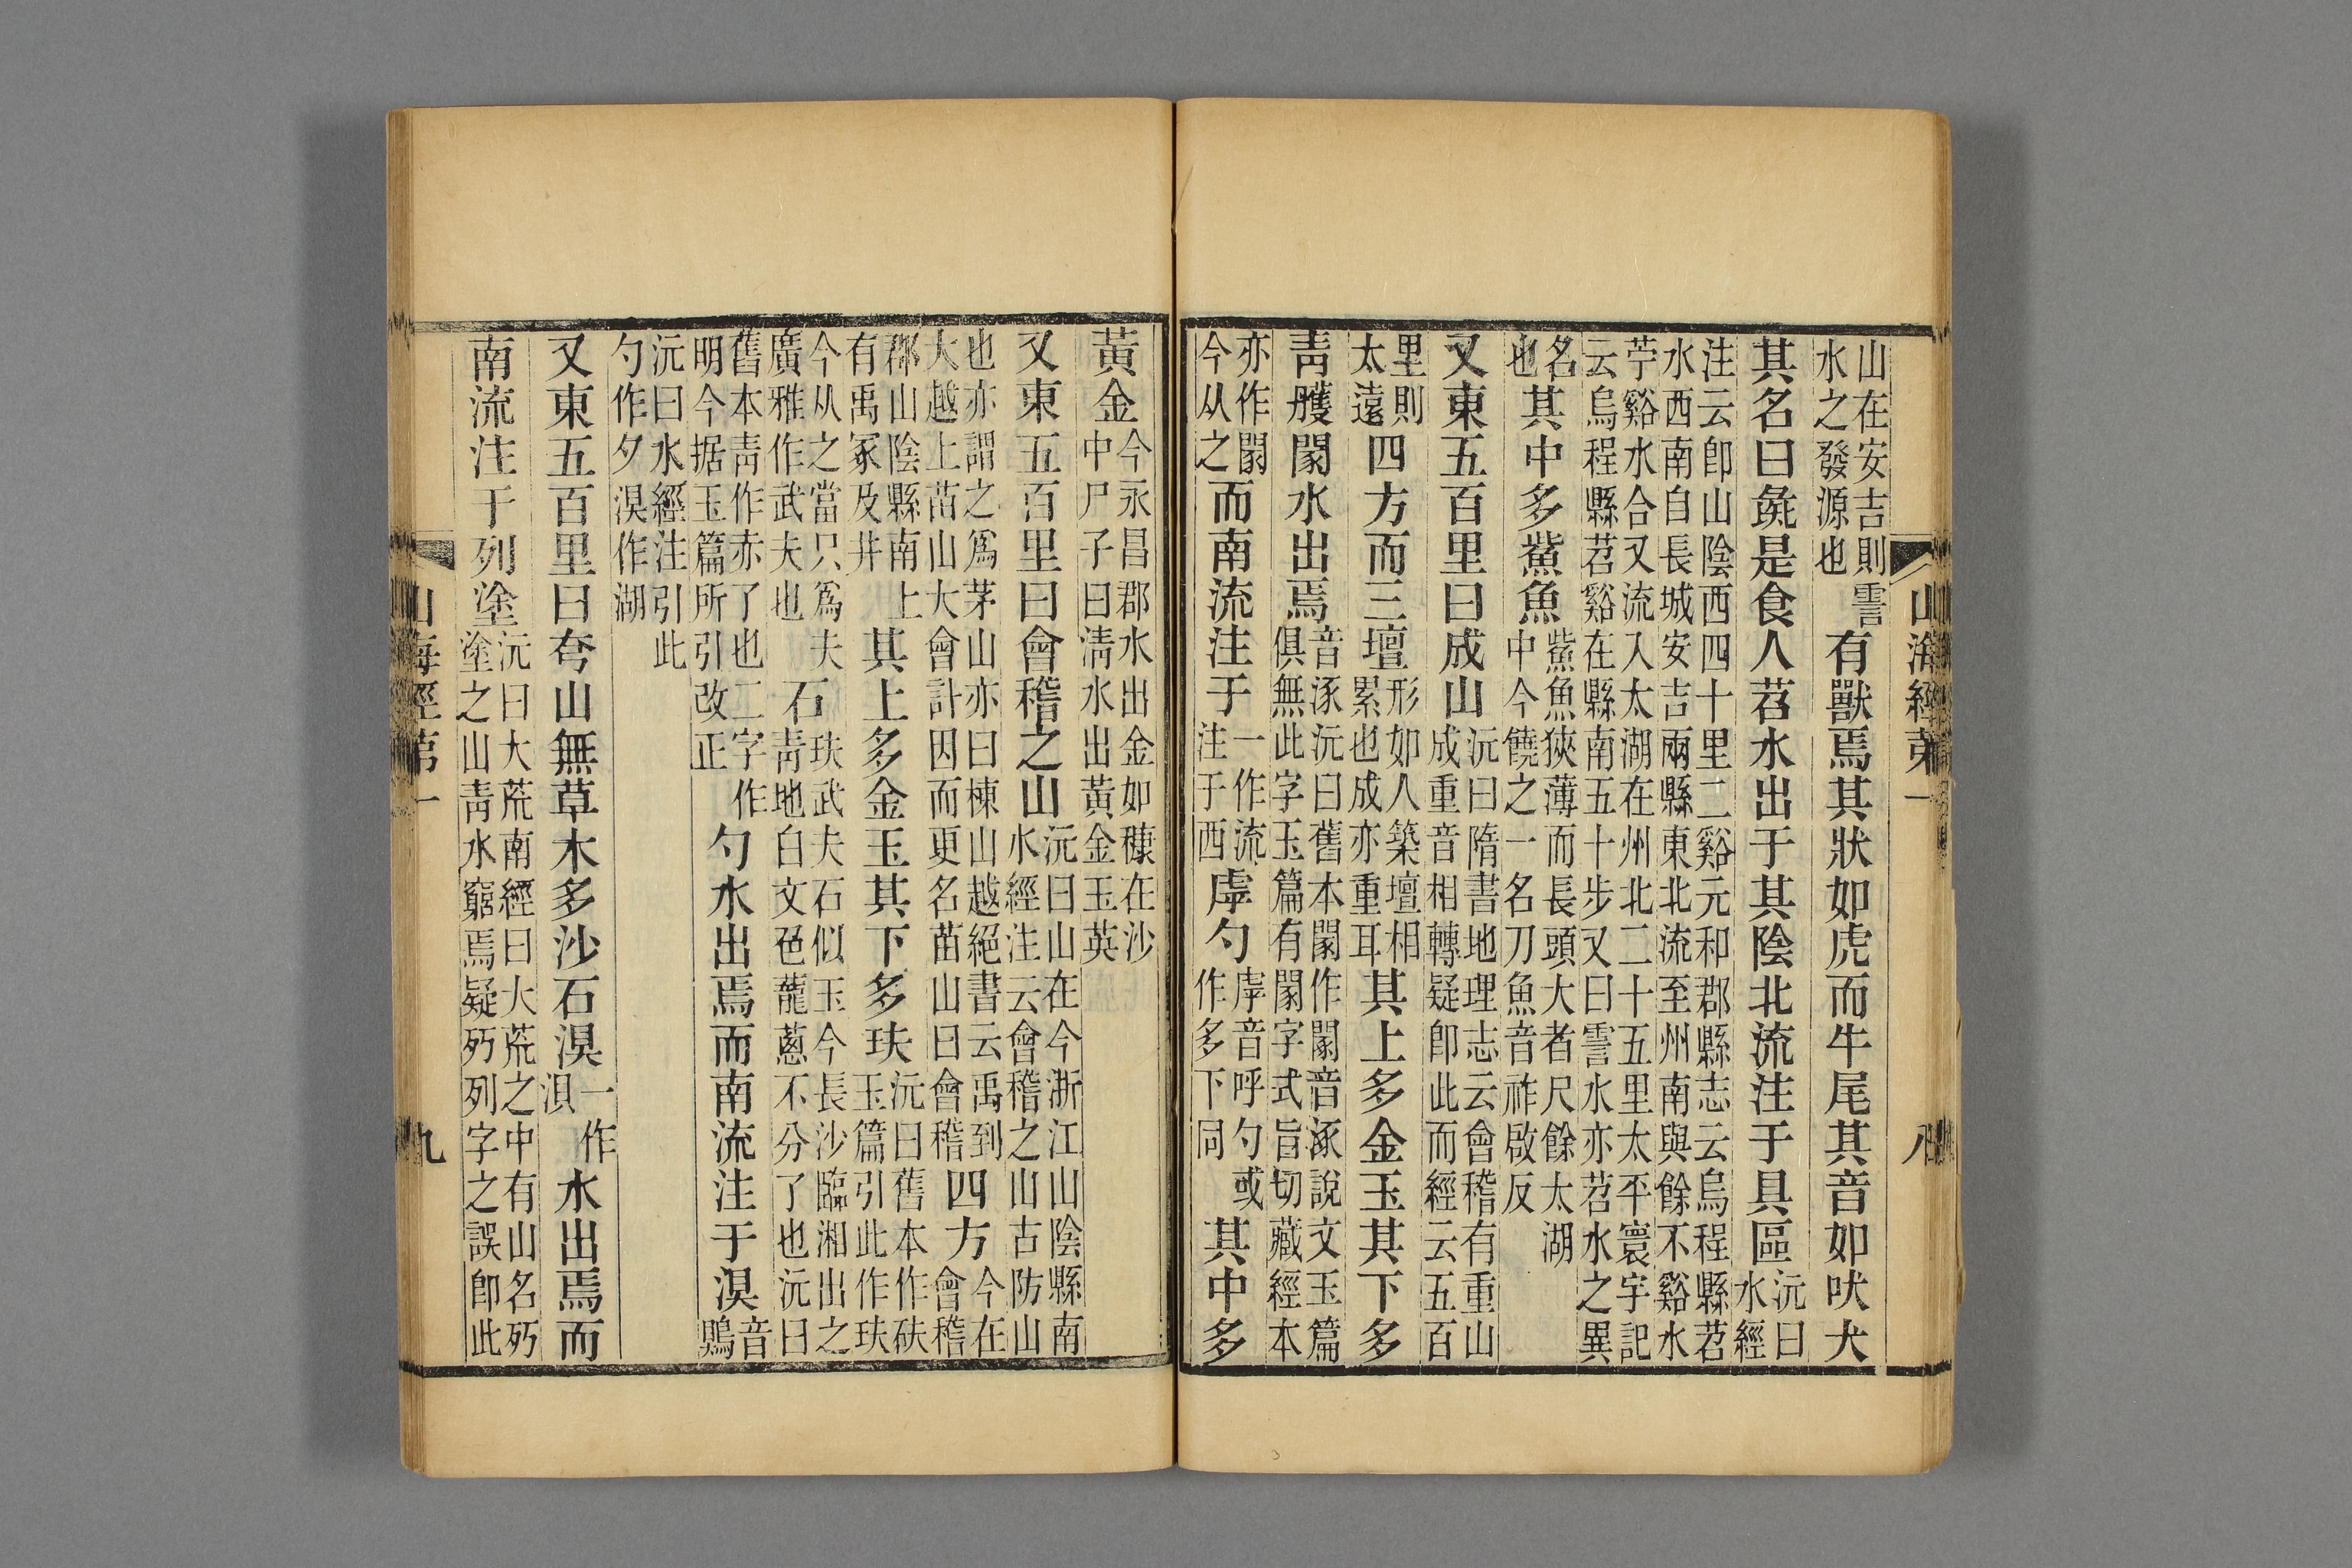 山海經弟一 八
山在安吉則霅水之發源也有獸焉其狀如虎而牛尾其音如吠犬
其名曰彘是食人苕水出于其陰北流注于具區沅曰水經
注云卽山陰西四十里二谿元和郡縣志云烏程縣苕
水西南自長城安吉兩縣東北流至州南與餘不谿水
苧谿水合又流入太湖在州北二十五里太平寰宇記
云烏程縣苕谿在縣南五十步又曰霅水亦苕水之異
名也其中多鮆魚鮆魚狹薄而長頭大者尺餘太湖中今饒之一名刀魚音祚啟反
又東五百里曰成山沅曰隋書地理志云會稽有重山成重音相轉疑卽此而經云五百
里則太遠四方而三壇形如人築壇相累也成亦重耳其上多金玉其下多
青雘水出焉音涿沅曰舊本作音涿說文玉篇俱無此字玉篇有字式旨切藏經本
亦作今从之而南流注于一作流注于西虖勺虖音呼勺或作多下同其中多
黃金今永昌郡水出金如穅在沙中尸子曰清水出黃金玉英
又東五百里曰會稽之山沅曰山在今浙江山陰縣南水經注云會稽之山古防山
也亦謂之爲茅山亦曰棟山越絕書云禹到大越上苗山大會計因而更名苗山曰會稽四方今在會稽
郡山陰縣南上有禹冢及井其上多金玉其下多玞沅曰舊本作砆玉篇引此作玞
今从之當只爲夫廣雅作武夫也石玞武夫石似玉今長沙臨湘出之青地白文色蘢蔥不分了也沅曰
舊本青作赤了也二字作明今据玉篇所引改正勺水出焉而南流注于湨音鶪
沅曰水經注引此勺作夕湨作湖
又東五百里曰夸山無草木多沙石湨一作浿水出焉而
南流注于列塗沅曰大荒南經曰大荒之中有山名㱙塗之山青水窮焉疑㱙列字之誤卽此
山海經第一 九